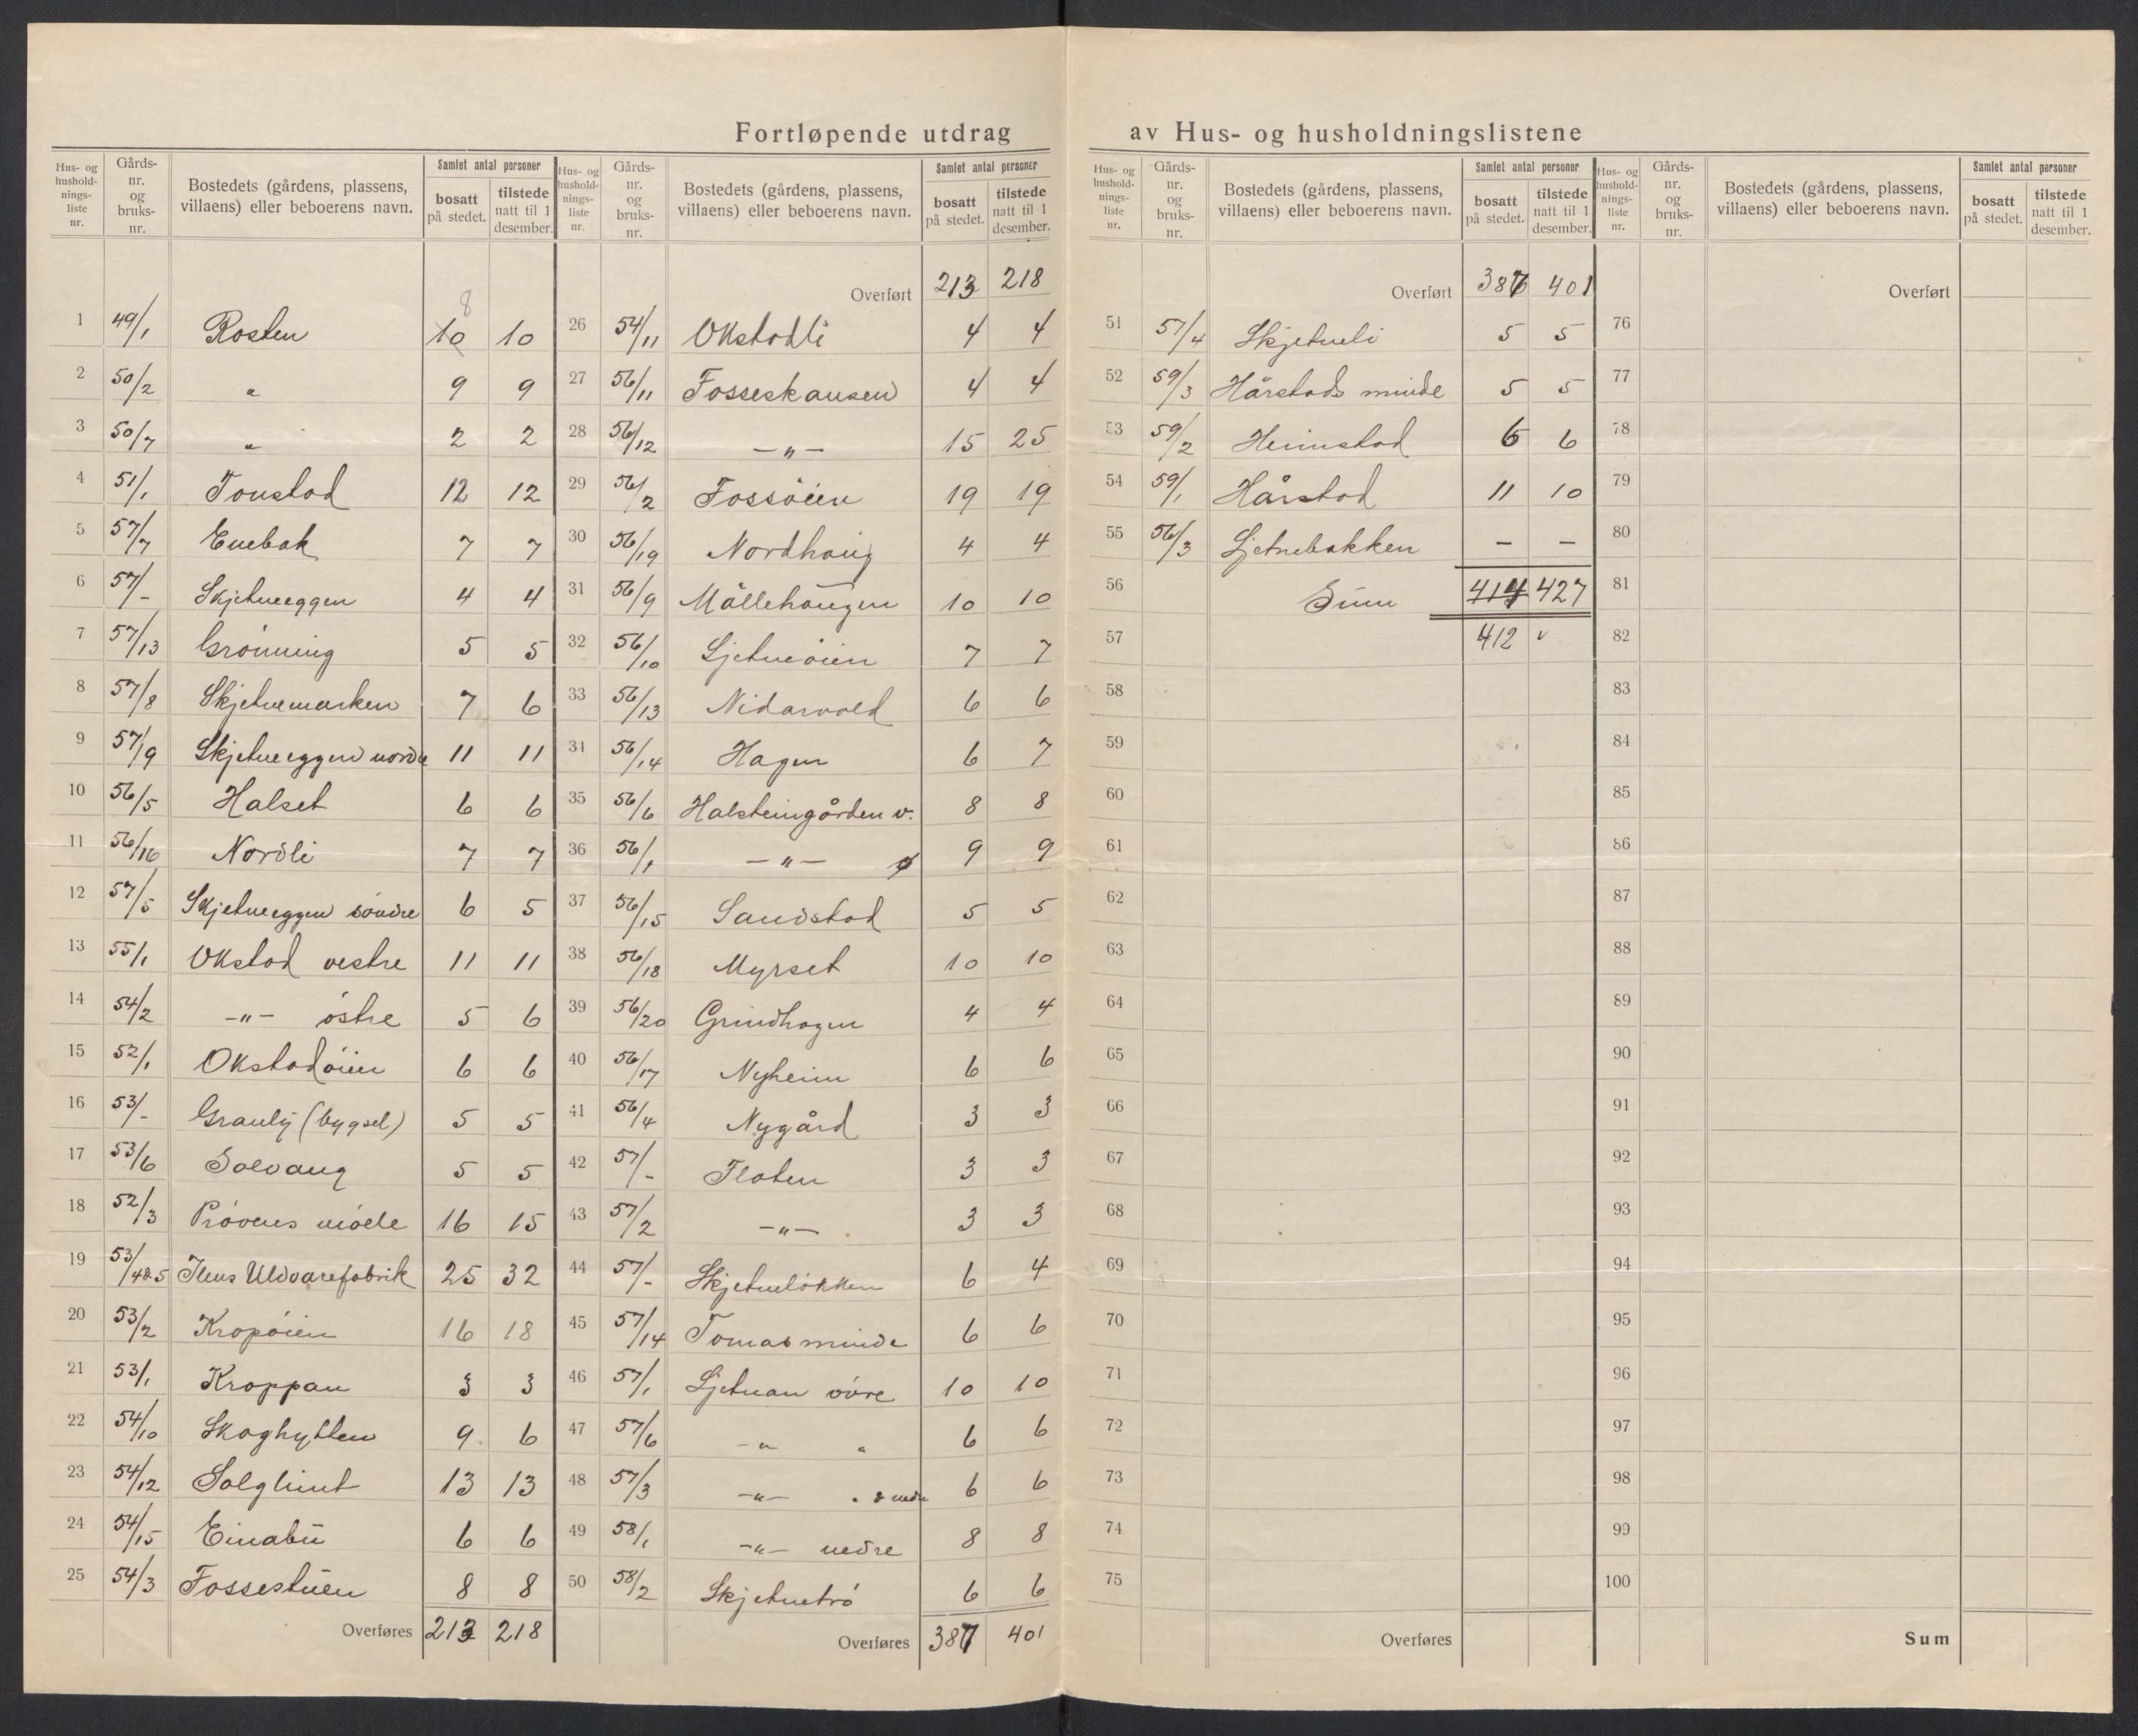 Fortløpende utdrag av Hus- og husholdningslistene
Hus- og husholdnings- liste nr. | Gårds- nr. og bruks- nr. | Bostedets (gårdens, plassens, villaens) eller beboerens navn. | Samlet antal personer | bosatt på stedet. | tilstede natt til 1 desember.
8
1 49/1 Rosten 10 10
2 50/2 " 9 9
3 50/7 " 2 2
4 51/1 Tonstad 12 12
5 57/7 Enebak 7 7
6 57/- Skjetneeggen 4 4
7 57/13 Grønning 5 5
8 57/8 Skjetnemarken 7 6
9 57/9 Skjetneeggen nordre 11 11
10 56/5 Halset 6 6
11 56/16 Nordli 7 7
12 57/5 Skjetneeggen söndre 6 5
13 55/1 Okstad vestre 11 11
14 54/2 -"- östre 5 6
15 52/1 Okstadöien 6 6
16 53/- Granly (bygsel) 5 5
17 53/6 Solvang 5 5
18 52/3 Prövens mölle 16 15
19 53/4&5 Ilens Uldvarefabrik 25 32
20 53/2 Kropöien 16 18
21 53/1 Kroppan 3 3
22 54/10 Skoghytten 9 6
23 54/12 Solglimt 13 13
24 54/15 Einabu 6 6
25 54/3 Fossestuen 8 8
Overføres 213 218
Hus- og husholdnings- liste nr. | Gårds- nr. og bruks- nr. | Bostedets (gårdens, plassens, villaens) eller beboerens navn. | Samlet antal personer | bosatt på stedet. | tilstede natt til 1 desember.
Overført 213 218
26 54/11 Okstadli 4 4
27 56/11 Fosseskansen 4 4
28 56/12 -"- 15 25
29 56/2 Fossöien 19 19
30 56/19 Nordhaug 4 4
31 56/9 Möllehaugen 10 10
32 56/10 Sjetneöien 7 7
33 56/13 Nidarvold 6 6
34 56/14 Hagen 6 7
35 56/6 Halsteingården v. 8 8
36 56/1 -"- ø 9 9
37 56/15 Sandstad 5 5
38 56/18 Myrset 10 10
39 56/20 Grindhagen 4 4
40 56/17 Nyheim 6 6
41 56/4 Nygård 3 3
42 57/- Flaten 3 3
43 57/2 -"- 3 3
44 57/- Skjetneløkken 6 4
45 57/14 Tomasminde 6 6
46 57/1 Sjetnan övre 10 10
47 57/6 -"- " 6 6
48 57/3 -"- " & nedre 6 6
49 58/1 -"- nedre 8 8
50 58/2 Skjetnetrö 6 6
Overføres 387 401
Hus- og husholdnings- liste nr. | Gårds- nr. og bruks- nr. | Bostedets (gårdens, plassens, villaens) eller beboerens navn. | Samlet antal personer | bosatt på stedet. | tilstede natt til 1 desember.
Overført 387 401
51 57/4 Skjetneli 5 5
52 59/3 Hårstads minde 5 5
53 59/2 Heimstad 6 6
54 59/1 Hårstad 11 10
55 56/3 Sjetnebakken - -
56 Sum 414 427
57 412 v
58
59
60
61
62
63
64
65
66
67
68
69
70
71
72
73
74
75
Overføres
Hus- og husholdnings- liste nr. | Gårds- nr. og bruks- nr. | Bostedets (gårdens, plassens, villaens) eller beboerens navn. | Samlet antal personer | bosatt på stedet. | tilstede natt til 1 desember.
Overført
76
77
78
79
80
81
82
83
84
85
86
87
88
89
90
91
92
93
94
95
96
97
98
99
100
Sum